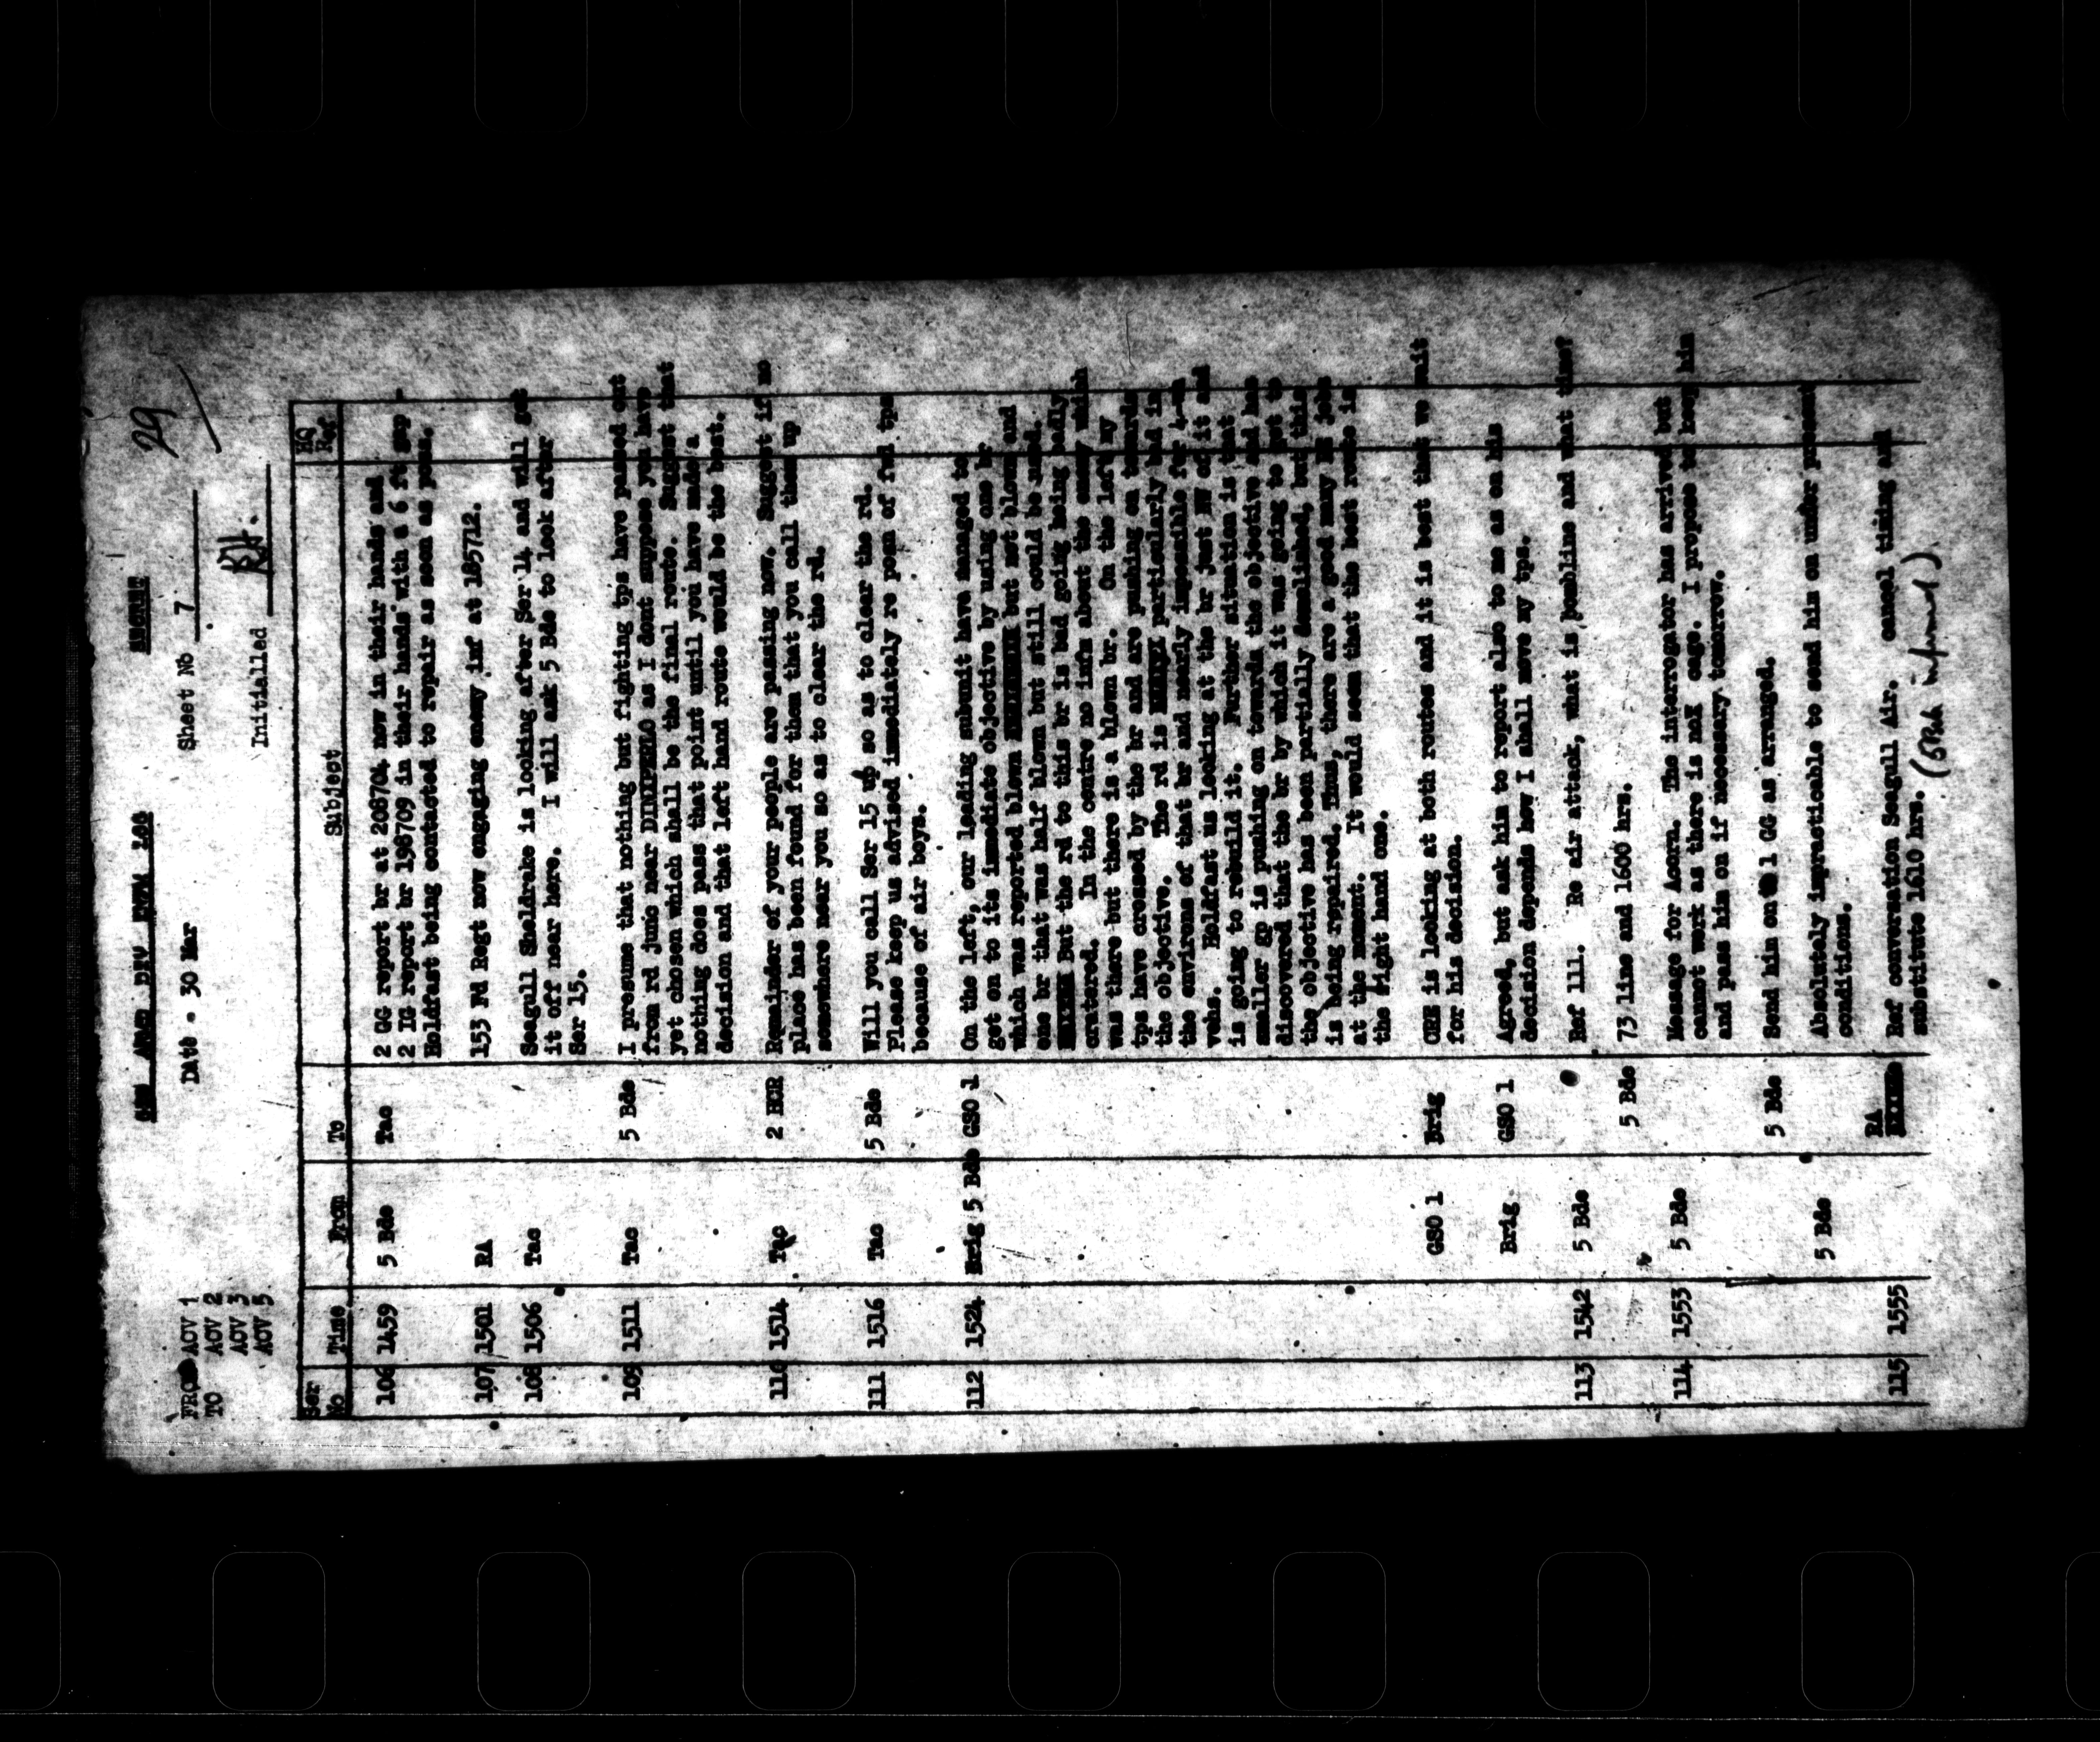 SECRET
29
DATE - 30 Mar
Sheet No 7
Initialled
FROM AOV 1
TO AOV 2
AOV 3
AOV 5
Ser No Time From To Subject HQ Ref
106 1459 5 Bde Tac 2 GG report br at 208704 now in their hands and
2 IG report br 198709 in their hands with a 6 ft gap -
Holdfast being contacted to repair as soon as poss.
107 1501 RA 153 Fd Regt now engaging enemy inf at 185712.
108 1506 Tac Seagull Sheldrake is looking after Ser 14 and will get
it off near here. I will ask 5 Bde to look after
Ser 15.
109 1511 Tac 5 Bde I presume that nothing but fighting tps have passed out
from rd junc near DINXPERLO as I dont suppose you have
yet chosen which shall be the final route. Suggest that
nothing does pass that point until you have made a
decision and that left hand route would be the best.
110 1514 Tac 2 HCR Remainder of your people are passing now. Suggest if no
place has been found for them that you call them up
somewhere near you so as to clear the rd.
111 1516 Tac 5 Bde Will you call Ser 15 up so as to clear the rd.
Please keep us advised immediately re posn of fwd tps
because of air boys.
112 1524 Brig 5 Bde GSO 1 On the left, our leading subunit have managed to
get on to its immediate objective by using one br
which was reported blown but not blown and
one br that was half blown but still could be used.
But the rd to this br is bad going being badly
cratered. In the centre no infm about the enemy which
was there but there is a blown br. On the left my
tps have crossed by the br and are pushing on towards
the objective. The rd is particularly bad in
the environs of that br and nearly impossible for
vehs. Holdfast us looking at the br just NW of it and
is going to rebuild it. Further situation is that
smaller gp is pushing on towards the objective and has
discovered that the br by which it was going to get to
the objective has been partially demolished, but this
is being repaired. Thus, there are a good many jobs
at the moment. It would seem that the best route is
the right hand one.
GSO 1 Brig CRE is looking at both routes and it is best that we wait
for his decision.
Brig GSO 1 Agreed, but ask him to report also to me as on his
decision depends how I shall move my tps.
113 1542 5 Bde Ref 111. Re air attack, what is bombline and what time?
5 Bde 73 line and 1600 hrs.
114 1553 5 Bde Message for Acorn. The interrogator has arrived but
cannot work as there is no cage. I propose to keep him
and pass him on if necessary tomorrow.
5 Bde Send him on 1 GG as arranged.
5 Bde Absolutely impracticable to send him on under present
conditions.
115 1555 RA Ref conversation Seagull Air. cancel timing and
substitute 1610 hrs. (5Bde informed).